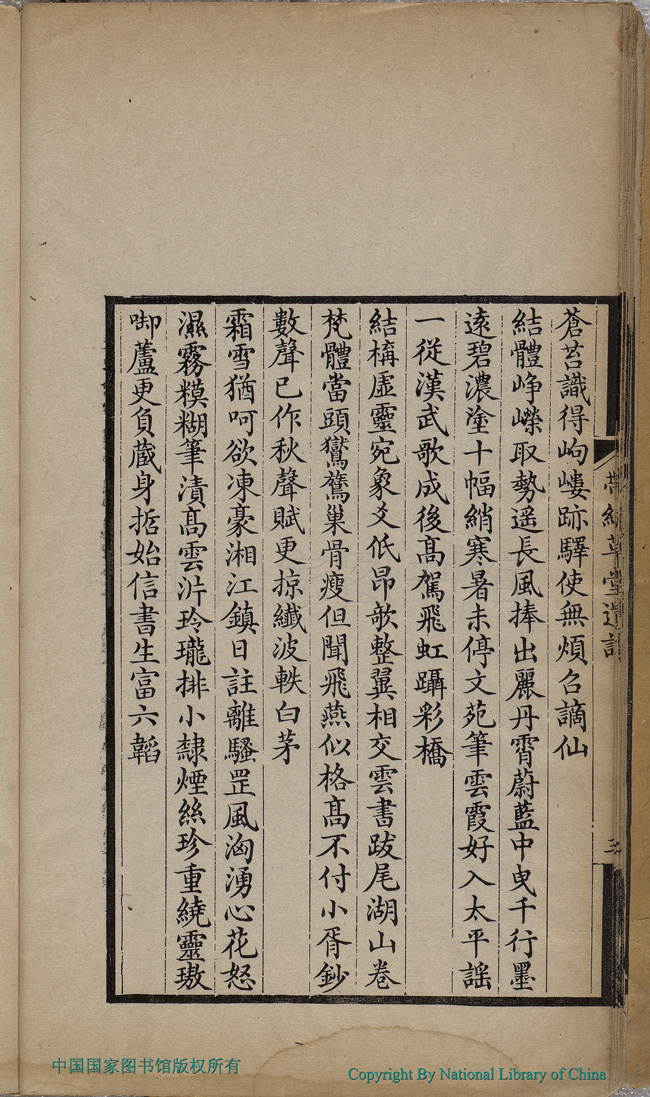 蒼苔識得岣嶁跡驛使無煩召謫仙
結體崢嶸取勢遥長風捧出麗丹霄蔚藍中曳千行墨
遠碧濃塗十幅綃寒暑未停文苑筆雲霞好入太平謡
一從漢武歌成後高駕飛虹躡彩橋
結構虛靈宛象爻低昂歌整翼相交雲書跋尾湖山卷
梵體當頭鸑鷟巢骨瘦但聞飛燕似格高不付小胥鈔
數聲已作秋聲賦更掠纖波軼白茅
霜雪猶呵欲凍豪湘江鎮日註離騷罡風洶湧心花怒
濕霧糢糊筆漬高雲沜玲瓏排小隸煙絲珍重繞靈璈
啣蘆更負蔵身挋始信書生富六韜
草堂遺
三
中国国家图书馆版权所有
Copyright By National Library of China